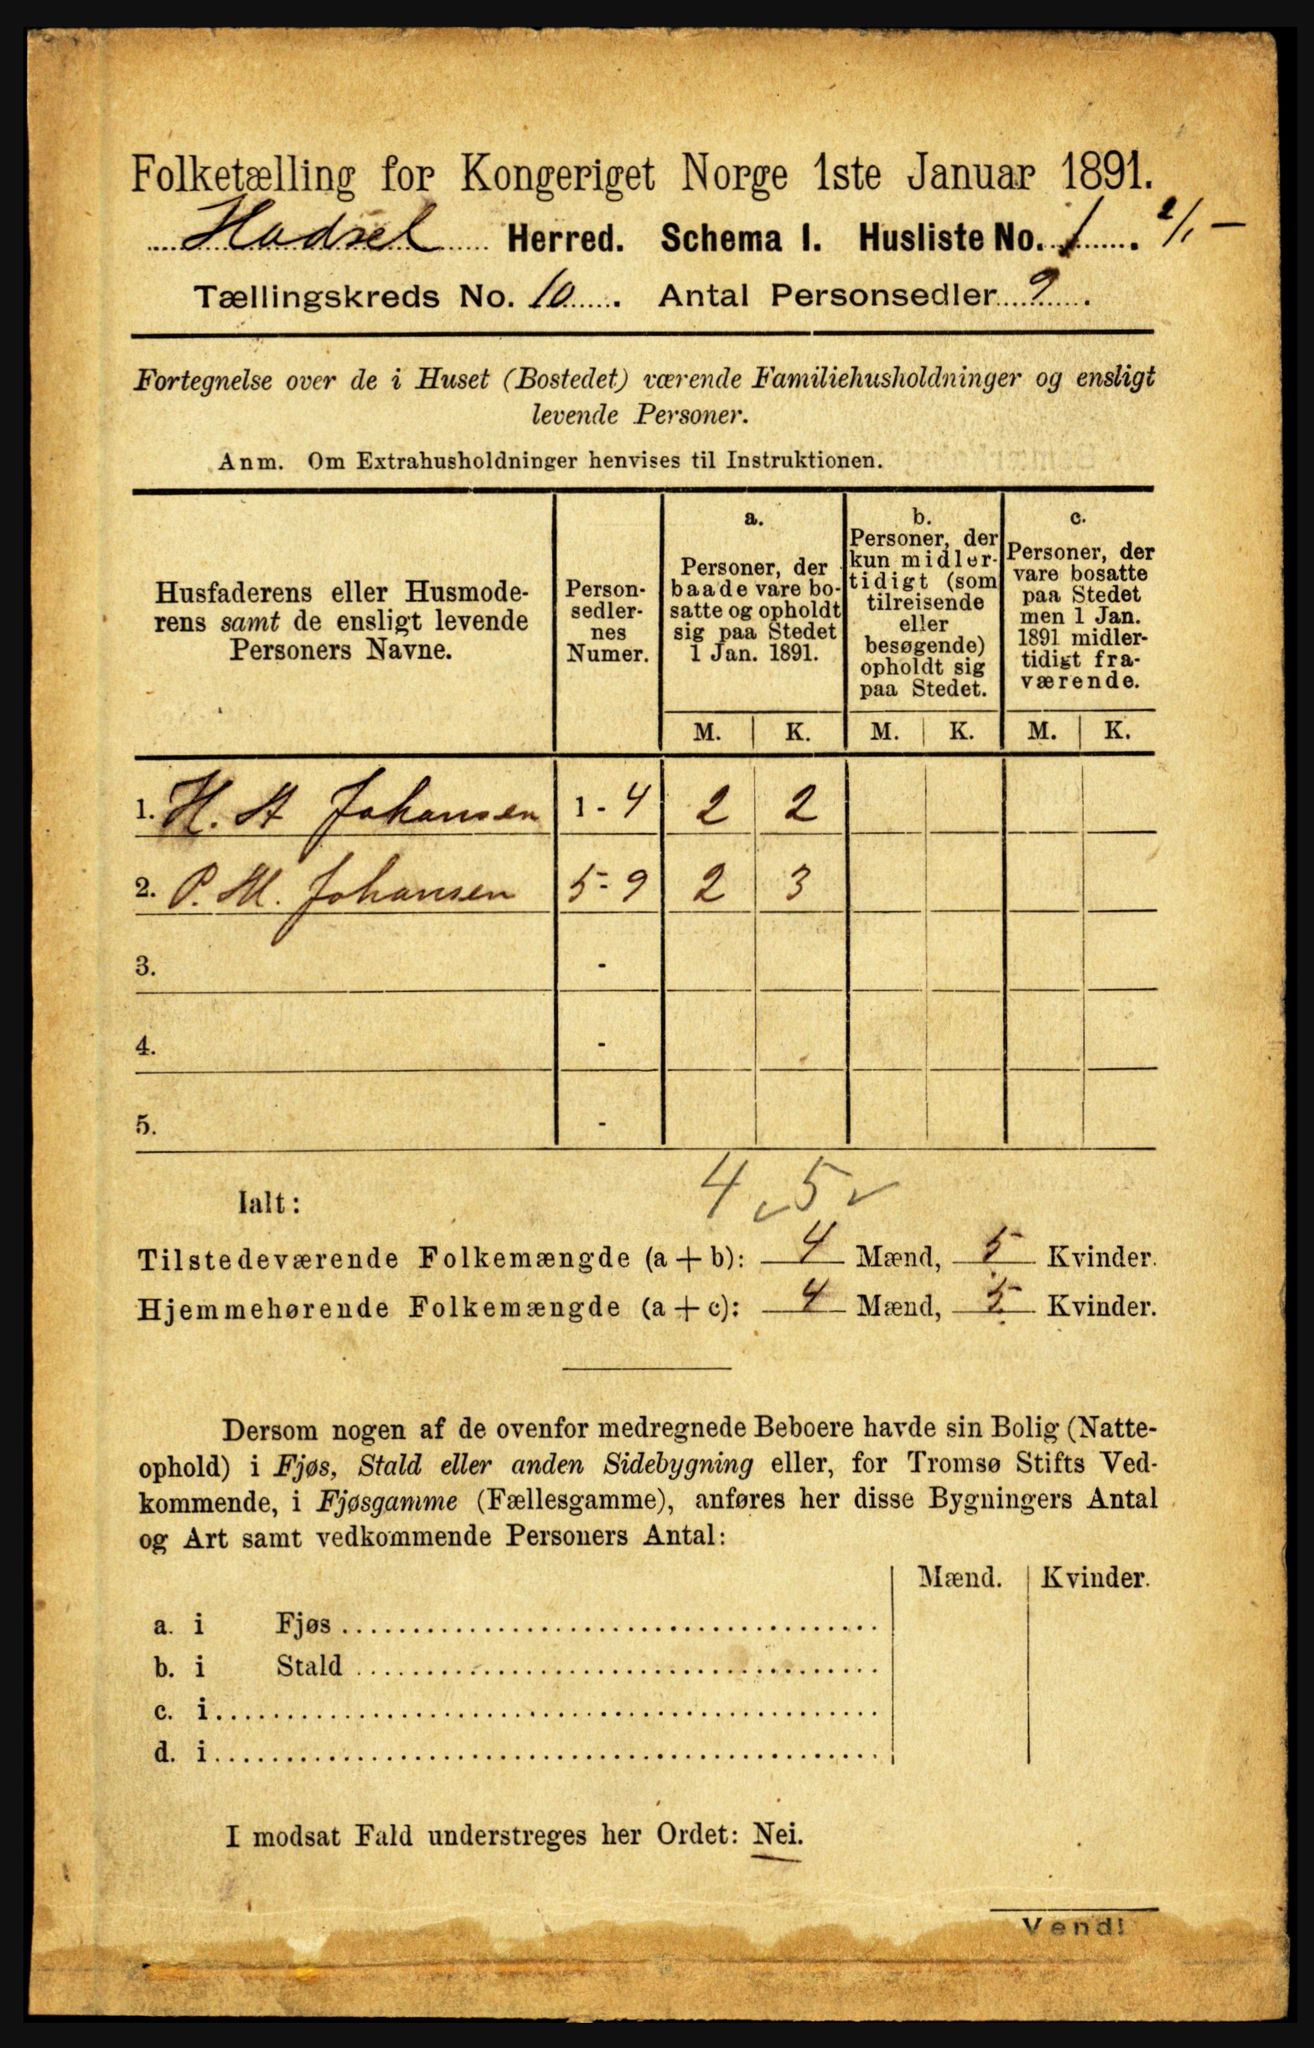 Folketælling for Kongeriget Norge 1ste Januar 1891.
Hadsel Herred. Schema I. Husliste No. 1. 2/, -
Tællingskreds No. 10. Antal Personsedler 9.
Fortegnelse over de i Huset (Bostedet) værende Familiehusholdninger og ensligt
levende Personer.
Anm. Om Extrahusholdninger henvises til Instruktionen.
Husfaderens eller Husmode-
rens samt de ensligt levende
Personers Navne.
Person-
sedler-
nes
Numer.
a.
Personer, der
baade vare bo-
satte og opholdt
sig paa Stedet
1 Jan. 1891.
b.
Personer, der
kun midler-
tidigt (som
tilreisende
eller
besøgende)
opholdt sig
paa Stedet.
c.
Personer, der
vare bosatte
paa Stedet
men 1 Jan.
1891 midler-
tidigt fra-
værende.
M. K. M. K. M. K.
1. H. A Johansen 1 - 4 2 2
2. P. M. Johansen 5 - 9 2 3
3. -
4. -
5. -
4 5
Ialt:
Tilstedeværende Folkemængde (a + b): 4 Mænd, 5 Kvinder.
Hjemmehørende Folkemængde (a + c): 4 Mænd, 5 Kvinder.
Dersom nogen af de ovenfor medregnede Beboere havde sin Bolig (Natte-
ophold) i Fjøs, Stald eller anden Sidebygning eller, for Tromsø Stifts Ved-
kommende, i Fjøsgamme (Fællesgamme), anføres her disse Bygningers Antal
og Art samt vedkommende Personers Antal:
Mænd. Kvinder.
a. i Fjøs
b. i Stald
c. i
d. i
I modsat Fald understreges her Ordet: Nei.
Vend!